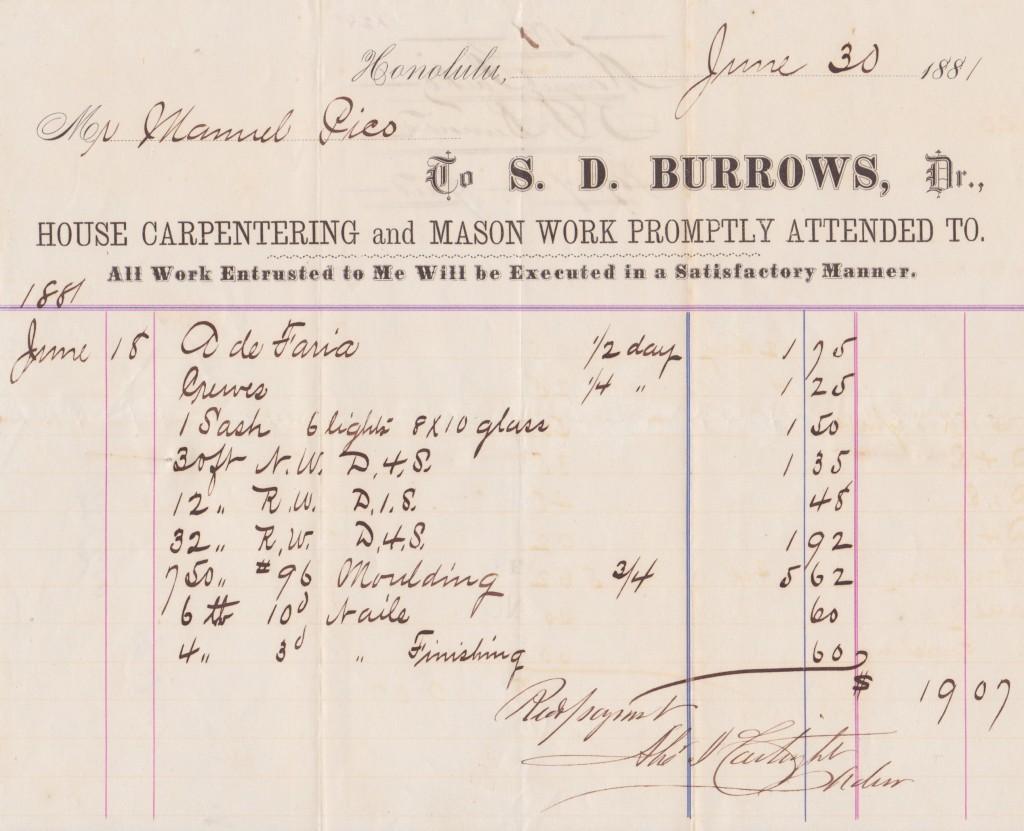 Honolulu, June 30 1881
Mr Manuel Pico
To S. D. BURROWS, Dr.,
HOUSE CARPENTERING and MASON WORK PROMPTLY ATTENDED TO.
All Work Entrusted to Me Will be Executed in a Satisfactory Manner.
1881
June 18 A de Faria 1/2 day 1 75
1/4 " 1 25
1 Sash 6 lights 8 x 10 glass 1 50
30 ft N.W. D.4.S. 1 35
12 " R.W. D.1.S. 48
32 " R.W. D.4.S. 1 92
750 " #96 Moulding 3/4 5 62
6 lb 10d Nails 60
4 " 3d " Finishing 60
$ 19 07
Recd payment
J Cartwright